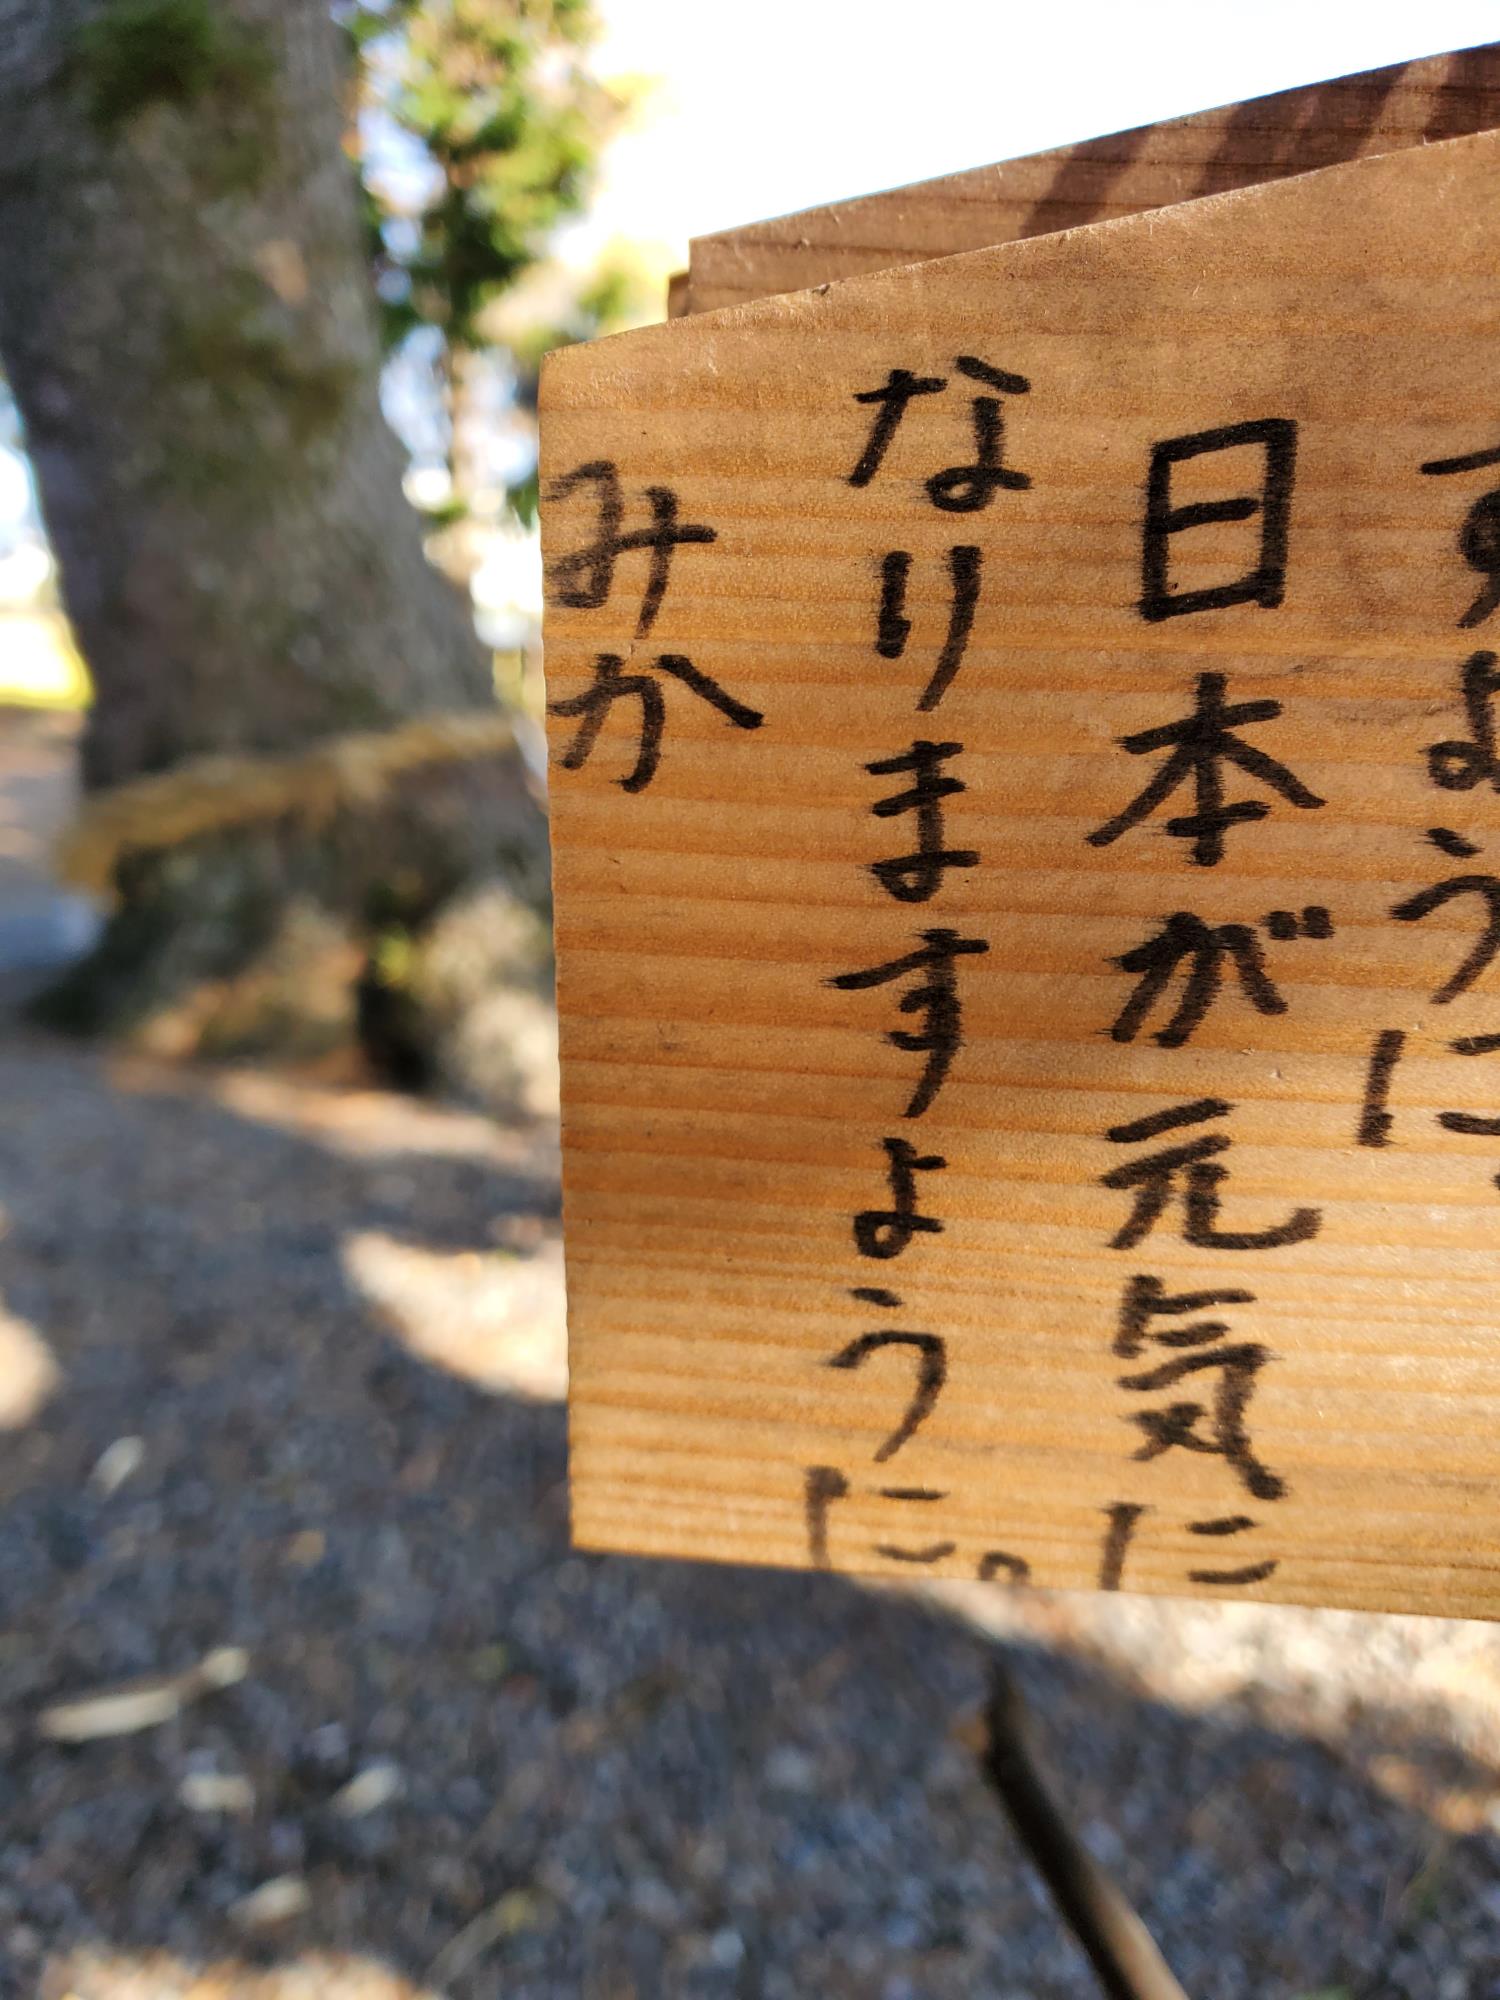 すように
日本が元気に
なりますように。
みか